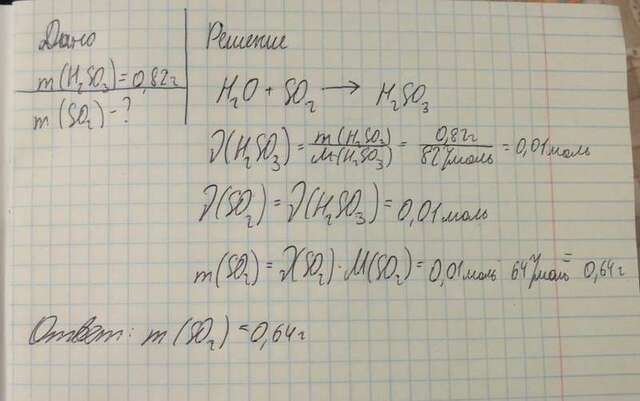 Дано
m(H₂SO₃)=0,82г
m(SO₂)-?
Решение
H₂O + SO₂ → H₂SO₃
ν(H₂SO₃) = m(H₂SO₃)/M(H₂SO₃) = 0,82г/82г/моль = 0,01моль
ν(SO₂) = ν(H₂SO₃) = 0,01моль
m(SO₂) = ν(SO₂)·M(SO₂) = 0,01моль 64г/моль = 0,64г
Ответ: m(SO₂) = 0,64г